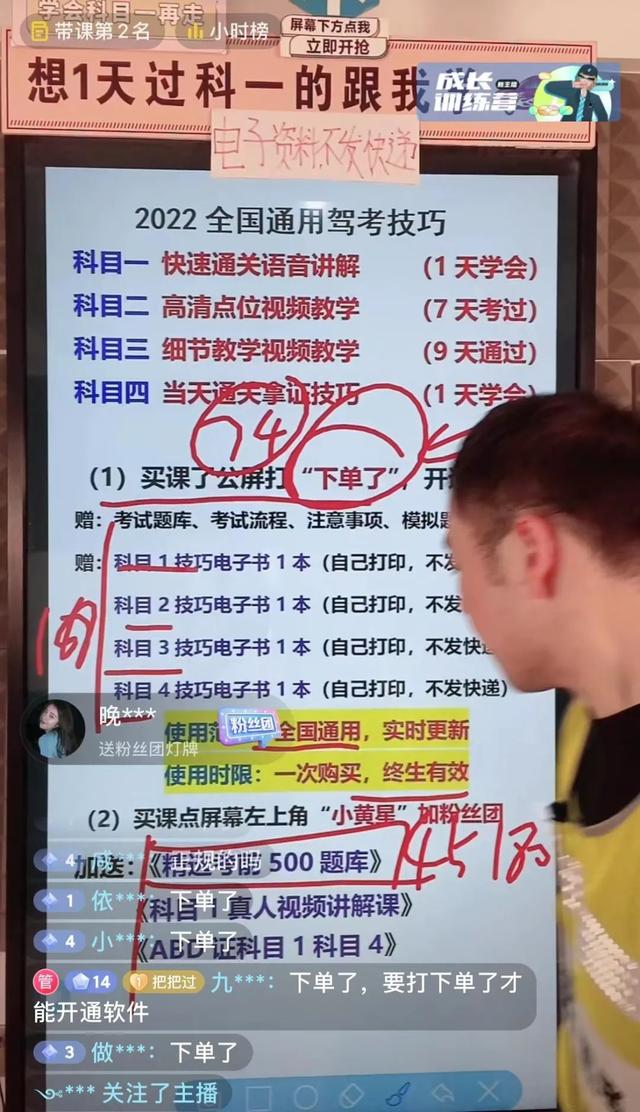 学会科目一再走
带课第2名
小时榜
屏幕下方点我
立即开抢
想1天过科一的跟我
成长
训练营
电子资料不发快递
2022全国通用驾考技巧
科目一 快速通关语音讲解 （1天学会）
科目二 高清点位视频教学 （7天考过）
科目三 细节教学视频教学 （9天通过）
科目四 当天通关拿证技巧 （1天学会）
（1）买课了公屏打“下单了”，开
赠：考试题库、考试流程、注意事项、模拟题
赠：科目1技巧电子书1本（自己打印，不发
科目2技巧电子书1本（自己打印，不发
科目3技巧电子书1本（自己打印，不发快递
科目4技巧电子书1本（自己打印，不发快递）
晚***
送粉丝团灯牌
粉丝团
全国通用，实时更新
使用时限：一次购买，终生有效
（2）买课点屏幕左上角“小黄星”加粉丝团
加送：《精选考前500题库》
4 ***：正规的吗
《科目1真人视频讲解课》
1 依***：下单了
4 小***：下单了
《ABD证科目1科目4》
管 14 1 把把过 九***：下单了，要打下单了才
能开通软件
3 做***：下单了
*** 关注了主播